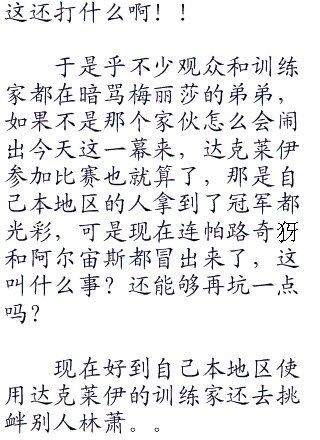 这还打什么啊！！
于是乎不少观众和训练
家都在暗骂梅丽莎的弟弟，
如果不是那个家伙怎么会闹
出今天这一幕来，达克莱伊
参加比赛也就算了，那是自
己本地区的人拿到了冠军都
光彩，可是现在连帕路奇犽
和阿尔宙斯都冒出来了，这
叫什么事？还能够再坑一点
吗？
现在好到自己本地区使
用达克莱伊的训练家还去挑
衅别人林萧。。